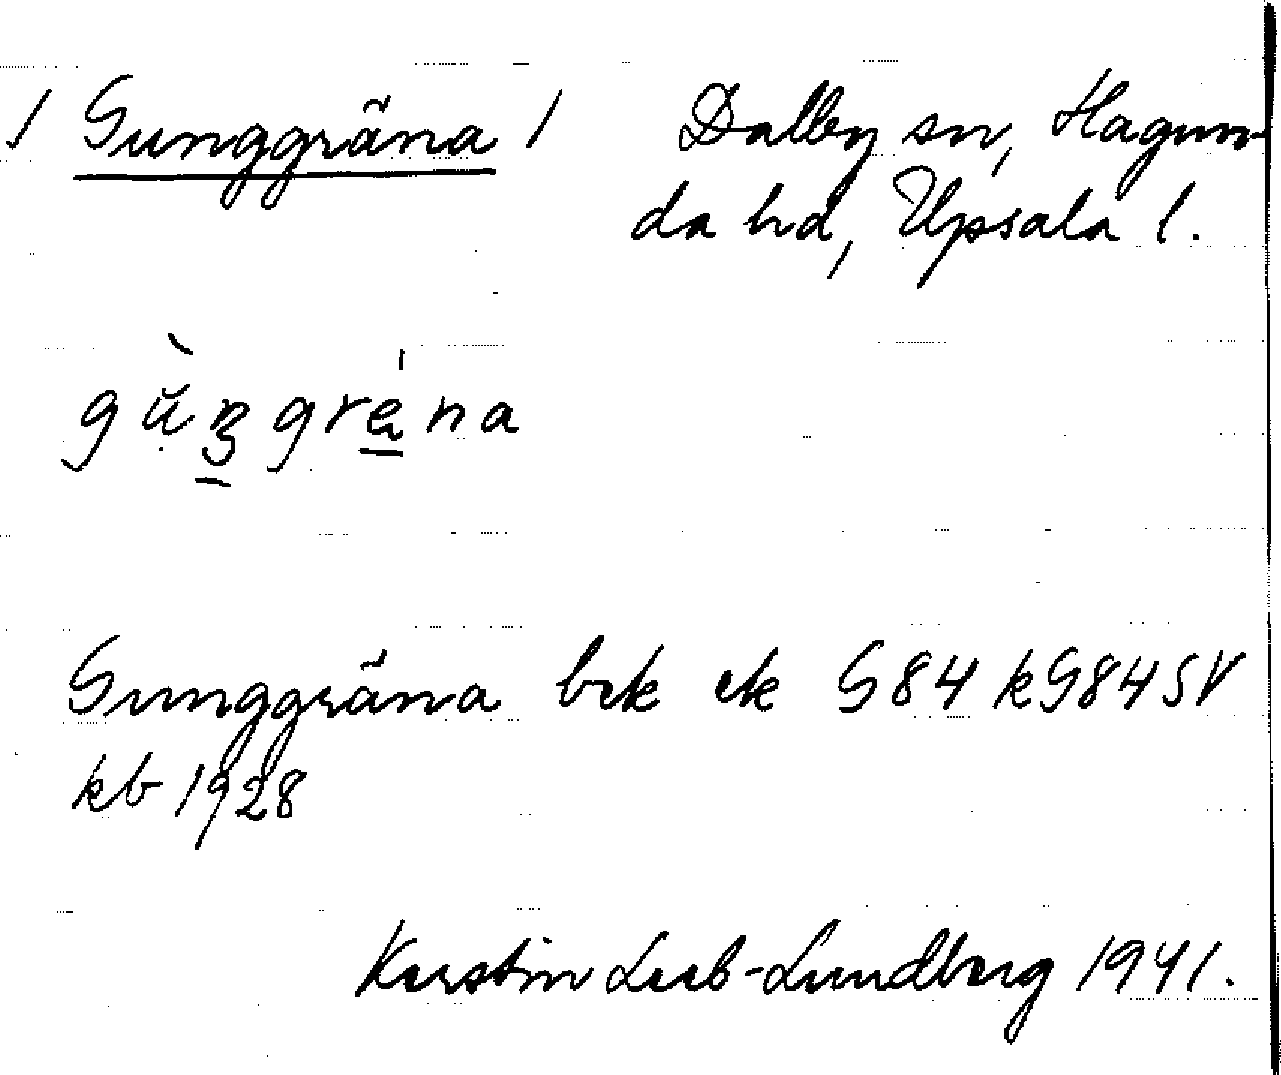 / Gunggräna / Dalby sn, Hagun-
da hd, Upsala l.
gùŋgréna
Gunggräna bek ek G84 kG84SV
kb 1928
Kerstin Leeb-Lundberg 1941.